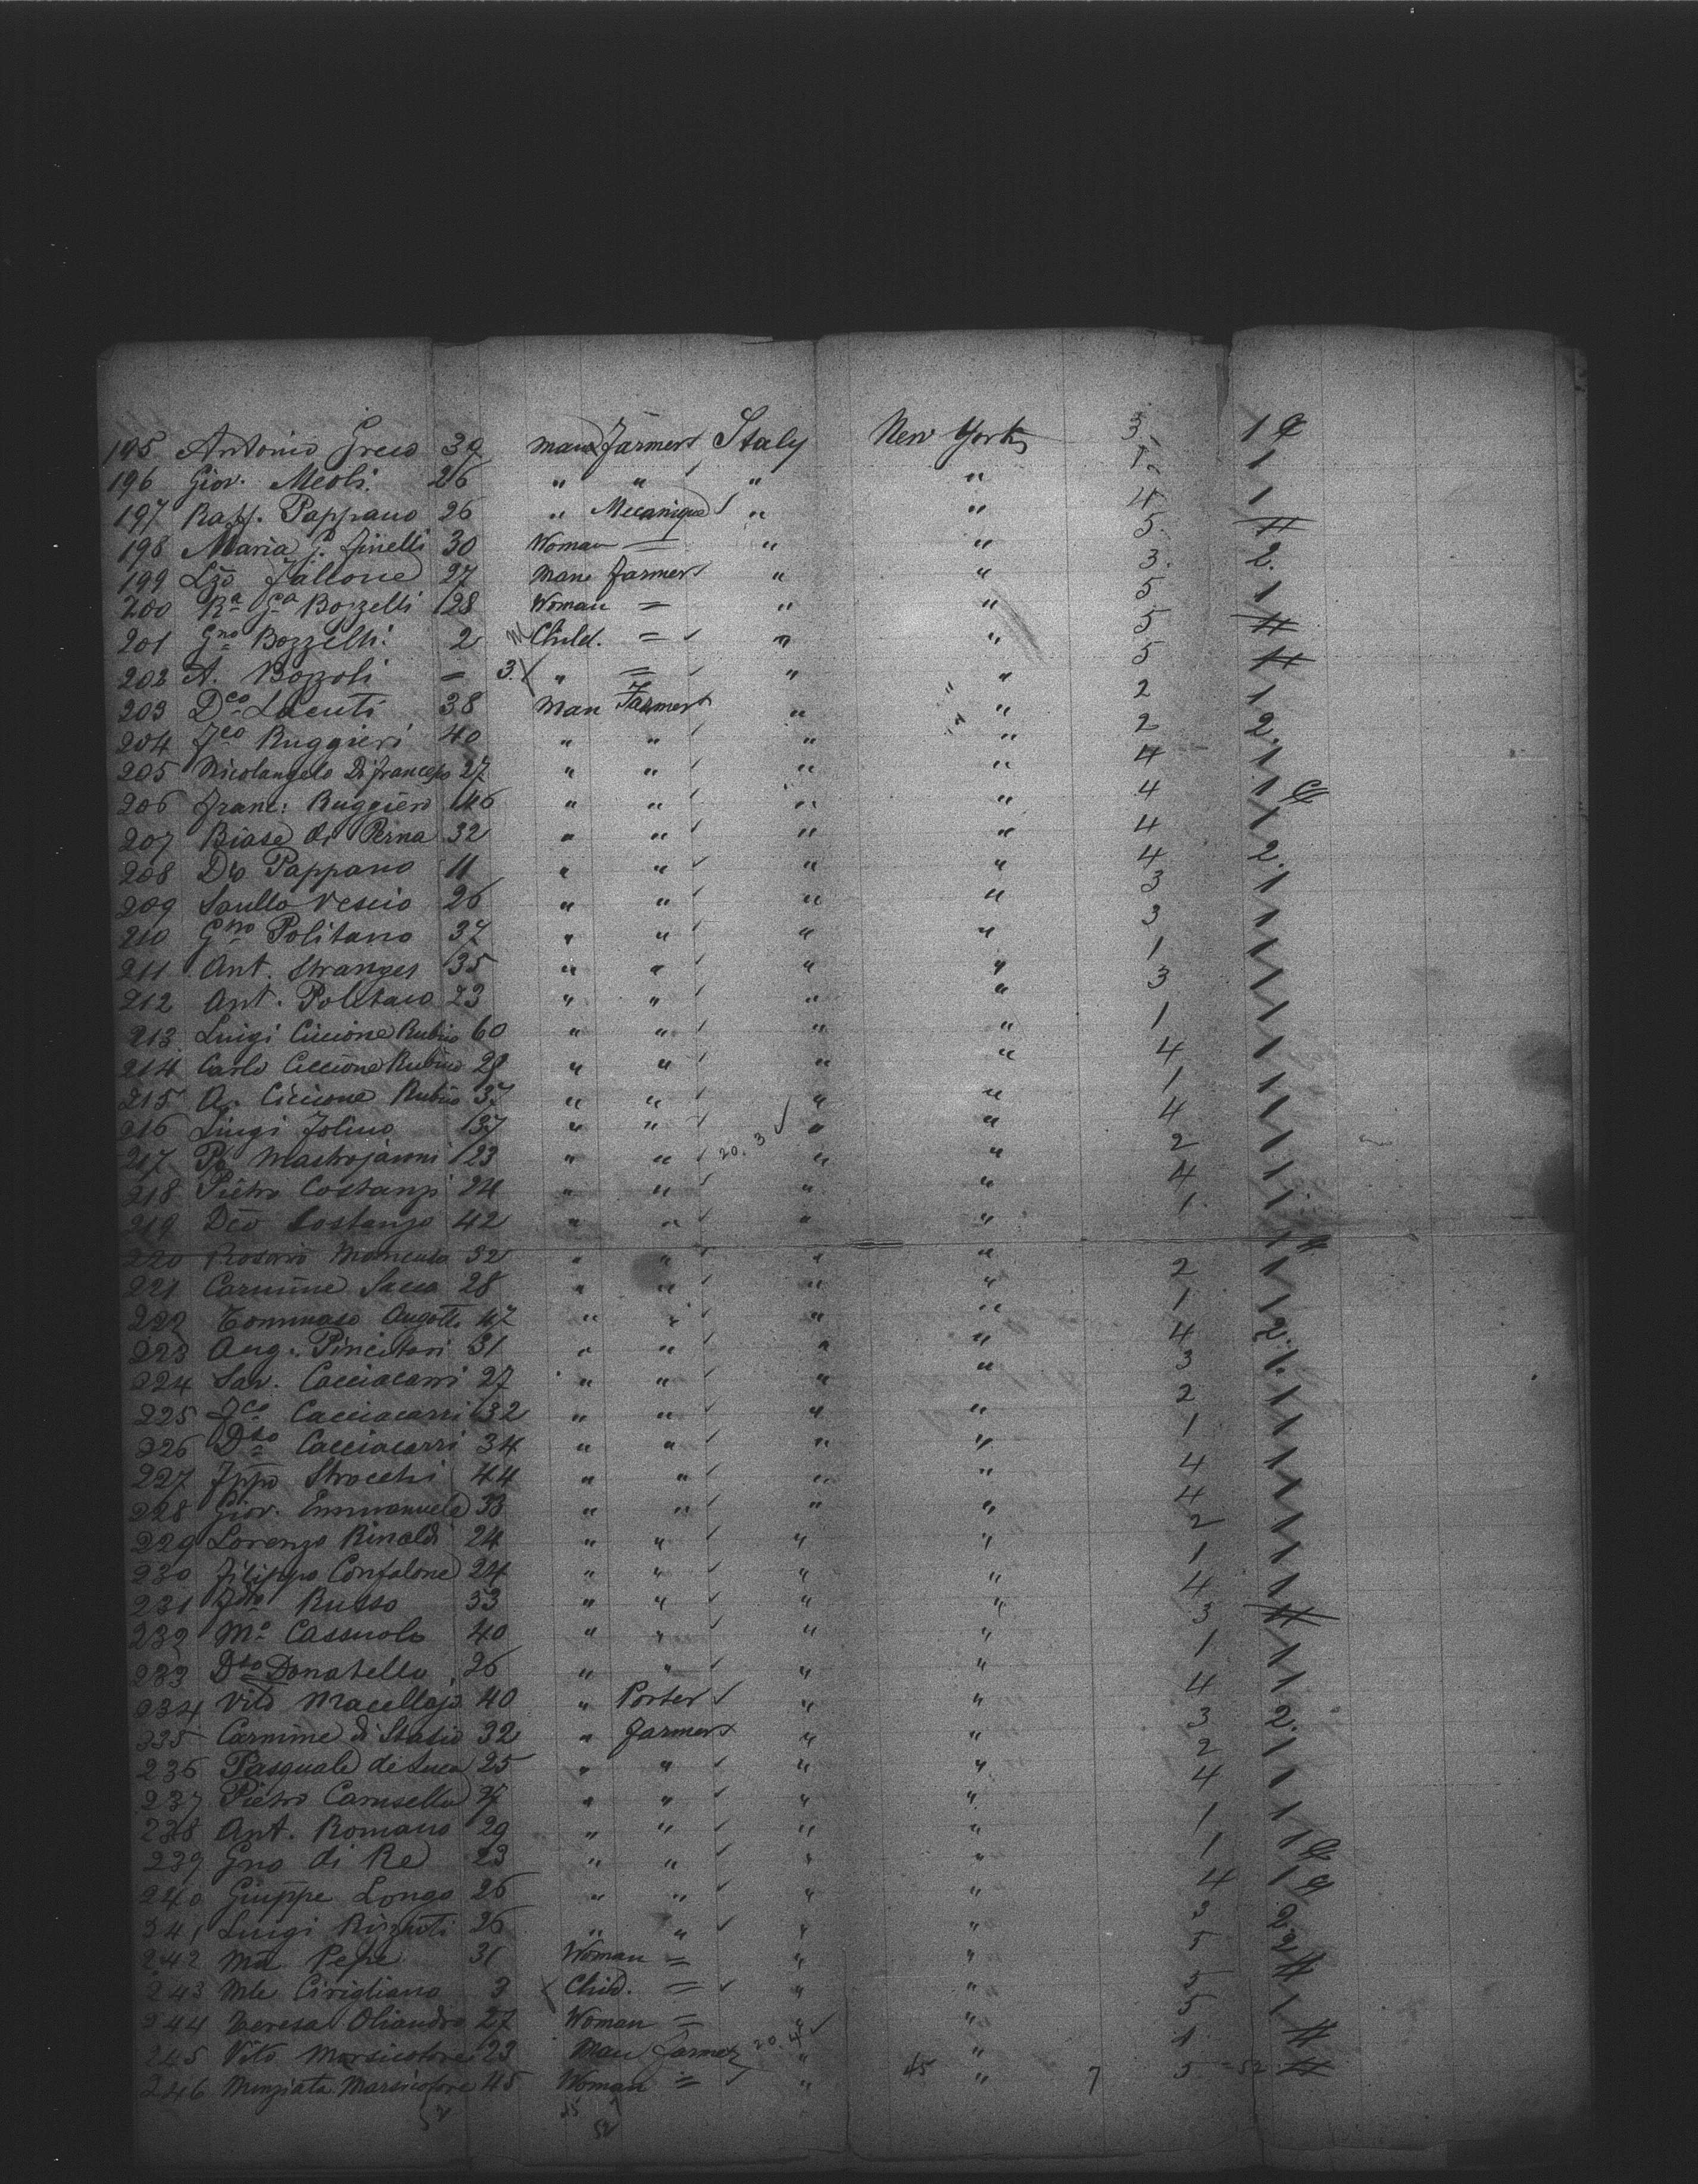 195 Antonio Greco 39 man Farmer Italy New York 3 1
196 Giov. Meoli 26 " " " " 1 1
197 Raff. Pappano 26 " Mecanique " " 4 1
198 Maria G. Finelli 30 Woman = " " 5
199 Lzo Fallone 27 Man Farmer " " 3 2.
200 Ra Ga Bozzelli 28 Woman = " " 5 1
201 Gno Bozzelli 2 Child. = " " 5
202 A. Bozzoli = 3. " = " " 5
203 Dco Lacenti 38 Man Farmer " " 2 1
204 Fco Ruggieri 40 " " " " 2 2.
205 Nicolangelo Di francesco 27 " " " " 4 1
206 Franc. Ruggiero 46 " " " " 4 1
207 Biase di Perna 32 " " " " 4 1
208 Do Pappano 11 " " " " 4 2.
209 Saullo Vescio 26 " " " " 3 1
210 Gno Politano 37 " " " " 3 1
211 Ant. Stranges 35 " " " " 1 1
212 Ant. Politano 23 " " " " 3 1
213 Luigi Ciccione Rubino 60 " " " " 1 1
214 Carlo Ciccione Rubino 28 " " " " 4 1
215 A. Ciccione Rubino 37 " " " " 1 1
216 Luigi Folino 37 " " " " 4 1
217 Po Mastrojanni 23 " " 20. 3 " " 2 1
218 Pietro Costanzi 24 " " " " 4 1
219 Dco Costanzo 42 " " " " 1 1
220 Rosario Mancuso 32 " " " " 1
221 Carmine Sacco 28 " " " " 2 1
222 Tommaso Angotti 47 " " " " 1 1
223 Aug. Pincitori 31 " " " " 4 2.
224 Sav. Cacciacarri 27 " " " " 3 1.
225 Fco Cacciacarri 32 " " " " 2 1
226 Dto Cacciacarri 34 " " " " 1 1
227 Fppo Strocchi 44 " " " " 4 1
228 Giov. Emmanuele 33 " " " " 4 1
229 Lorenzo Rinaldi 24 " " " " 2 1
230 Filippo Confalone 24 " " " " 1 1
231 Russo 53 " " " " 4 1
232 Mo Cassuolo 40 " " " " 3
233 Dto Donatello 26 " " " " 1 1
234 Vito Macellajo 40 " Porter " " 4 1
235 Carmine di Stasio 32 " Farmer " " 3 2.
236 Pasquale de Luca 25 " " " " 2 1
237 Pietro Carusello " " " " 4 1
238 Ant. Romano 29 " " " " 1 1
239 Gno di Re 23 " " " " 1 1
240 Giuppe Longo 26 " " " " 4 1
241 Luigi Rizzuti 26 " " " " 3 2.
242 Ma Pepe 31 Woman = " " 5 2
243 Mle Cirigliano 3 Child. = " " 5
244 Teresa Oliandro 27 Woman = " " 5 1
245 Vito Marsicotore 23 Man Farmer 20. 4 " " 1
246 Nunziata Marsicotore 45 Woman = " 45 " 7 5 = 52
52